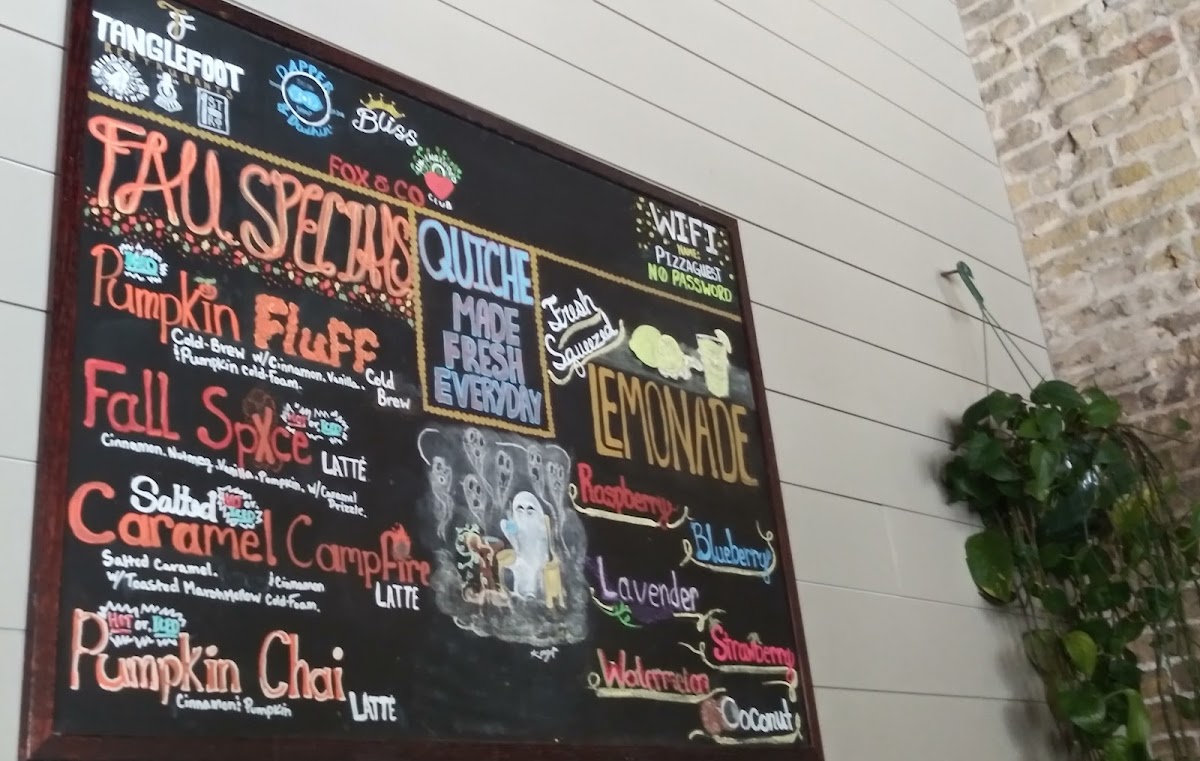 TANGLEFOOT
RESTAURANTS
1ST
DAPPER
Bliss
FOX & CO
CLUB
WIFI
NAME:
PIZZAGUEST
NO PASSWORD
FALL SPECIALS
ICED
Pumpkin Fluff
Cold Brew
Cold-Brew w/Cinnamon, Vanilla,
& Pumpkin Cold-Foam.
Fall Spice
HOT or ICED
LATTÉ
Cinnamon, Nutmeg, Vanilla, Pumpkin, w/Caramel
Drizzle.
Salted
HOT or ICED
Caramel Campfire
LATTE
Salted Caramel,
/Cinnamon
w/Toasted Marshmellow Cold-Foam.
HOT or ICED
Pumpkin Chai
LATTÉ
Cinnamon & Pumpkin
QUICHE
MADE
FRESH
EVERYDAY
Fresh
Squeezed
LEMONADE
Raspberry
Blueberry
Lavender
Strawberry
Watermelon
Coconut